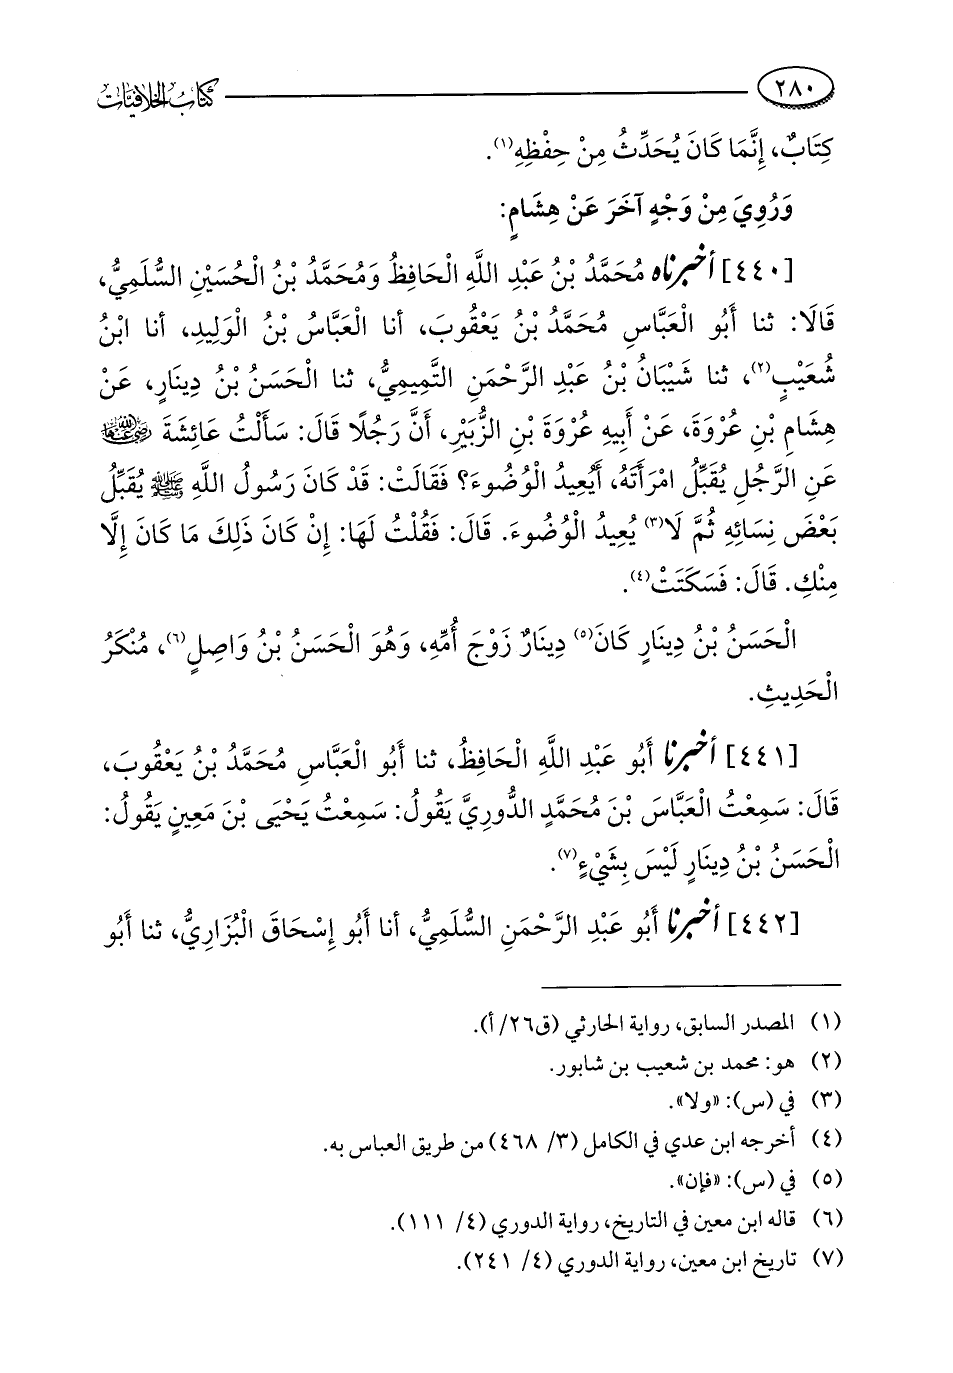 ٢٨٠ كتاب الخلافيات
كِتَابٌ، إِنَّمَا كَانَ يُحَدِّثُ مِنْ حِفْظِهِ(١).
وَرُوِيَ مِنْ وَجْهٍ آخَرَ عَنْ هِشَامٍ:
[٤٤٠] أخبرناه مُحَمَّدُ بْنُ عَبْدِ اللَّهِ الْحَافِظُ وَمُحَمَّدُ بْنُ الْحُسَيْنِ السُّلَمِيُّ،
قَالَا: ثنا أَبُو الْعَبَّاسِ مُحَمَّدُ بْنُ يَعْقُوبَ، أنا الْعَبَّاسُ بْنُ الْوَلِيدِ، أنا ابْنُ
شُعَيْبٍ(٢)، ثنا شَيْبَانُ بْنُ عَبْدِ الرَّحْمَنِ التَّمِيمِيُّ، ثنا الْحَسَنُ بْنُ دِينَارٍ، عَنْ
هِشَامِ بْنِ عُرْوَةَ، عَنْ أَبِيهِ عُرْوَةَ بْنِ الزُّبَيْرِ، أَنَّ رَجُلًا قَالَ: سَأَلْتُ عَائِشَةَ رضي الله عنها
عَنِ الرَّجُلِ يُقَبِّلُ امْرَأَتَهُ، أَيُعِيدُ الْوُضُوءَ؟ فَقَالَتْ: قَدْ كَانَ رَسُولُ اللَّهِ ﷺ يُقَبِّلُ
بَعْضَ نِسَائِهِ ثُمَّ لَا(٣) يُعِيدُ الْوُضُوءَ. قَالَ: فَقُلْتُ لَهَا: إِنْ كَانَ ذَلِكَ مَا كَانَ إِلَّا
مِنْكِ. قَالَ: فَسَكَتَتْ(٤).
الْحَسَنُ بْنُ دِينَارٍ كَانَ(٥) دِينَارٌ زَوْجَ أُمِّهِ، وَهُوَ الْحَسَنُ بْنُ وَاصِلٍ(٦)، مُنْكَرُ
الْحَدِيثِ.
[٤٤١] أخبرنا أَبُو عَبْدِ اللَّهِ الْحَافِظُ، ثنا أَبُو الْعَبَّاسِ مُحَمَّدُ بْنُ يَعْقُوبَ،
قَالَ: سَمِعْتُ الْعَبَّاسَ بْنَ مُحَمَّدٍ الدُّورِيَّ يَقُولُ: سَمِعْتُ يَحْيَى بْنَ مَعِينٍ يَقُولُ:
الْحَسَنُ بْنُ دِينَارٍ لَيْسَ بِشَيْءٍ(٧).
[٤٤٢] أخبرنا أَبُو عَبْدِ الرَّحْمَنِ السُّلَمِيُّ، أنا أَبُو إِسْحَاقَ الْبُزَارِيُّ، ثنا أَبُو
(١) المصدر السابق، رواية الحارثي (ق٢٦/ أ).
(٢) هو: محمد بن شعيب بن شابور.
(٣) في (س): «ولا».
(٤) أخرجه ابن عدي في الكامل (٣/ ٤٦٨) من طريق العباس به.
(٥) في (س): «فإن».
(٦) قاله ابن معين في التاريخ، رواية الدوري (٤/ ١١١).
(٧) تاريخ ابن معين، رواية الدوري (٤/ ٢٤١).